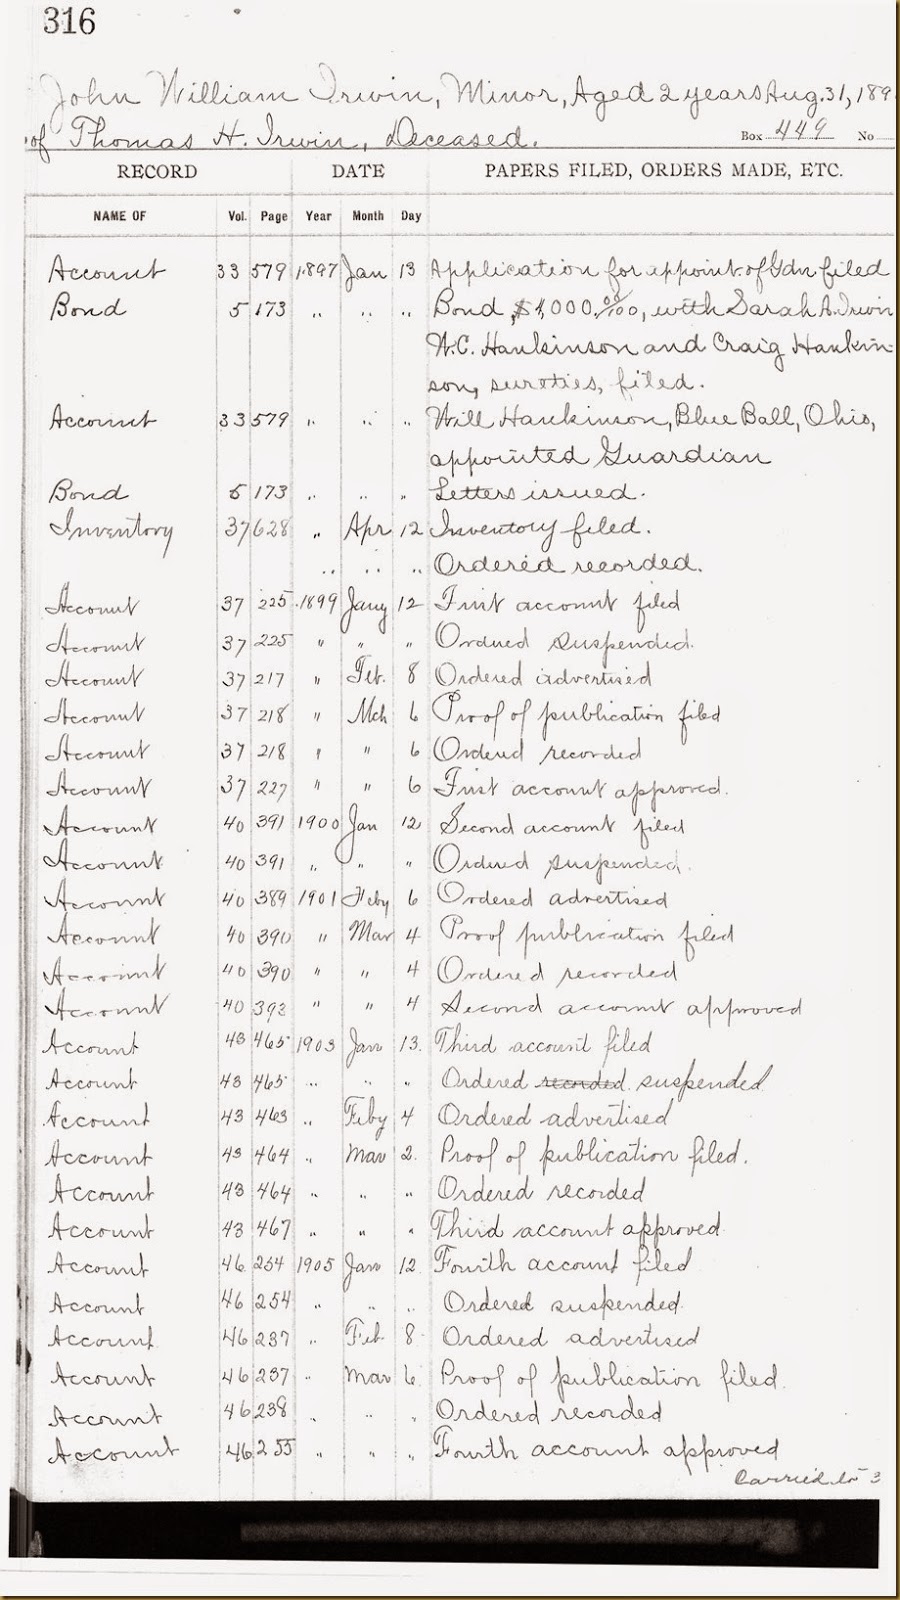 316
John William Irwin, Minor, Aged 2 years Aug. 31, 189
of Thomas H. Irwin, Deceased. Box 449 No
RECORD DATE PAPERS FILED, ORDERS MADE, ETC.
NAME OF Vol. Page Year Month Day
Account 33 579 1897 Jan 13 Application for appoint. of Gdn filed
Bond 5 173 " " " Bond, $4,000.00/100, with Sarah A. Irwin
W.C. Hankinson and Craig Hankin-
son, sureties, filed.
Account 33 579 " " " Will Hankinson, Blue Ball, Ohio,
appointed Guardian
Bond 5 173 " " " Letters issued.
Inventory 37 628 " Apr 12 Inventory filed.
" " " Ordered recorded.
Account 37 225 1899 Jany 12 First account filed
Account 37 225 " " " Ordered suspended.
Account 37 217 " Feb. 8 Ordered advertised
Account 37 218 " Mch 6 Proof of publication filed
Account 37 218 " " 6 Ordered recorded
Account 37 227 " " 6 First account approved.
Account 40 391 1900 Jan 12 Second account filed
Account 40 391 " " " Ordered suspended.
Account 40 389 1901 Feby 6 Ordered advertised
Account 40 390 " Mar 4 Proof publication filed
Account 40 390 " " 4 Ordered recorded
Account 40 393 " " 4 Second account approved
Account 43 465 1903 Jan 13. Third account filed
Account 43 465 " " " Ordered recorded. suspended
Account 43 463 " Feby 4 Ordered advertised
Account 43 464 " Mar 2. Proof of publication filed.
Account 43 464 " " " Ordered recorded
Account 43 467 " " " Third account approved.
Account 46 254 1905 Jan 12. Fourth account filed
Account 46 254 " " " Ordered suspended.
Account 46 237 " Feb 8 Ordered advertised
Account 46 237 " Mar 6. Proof of publication filed.
Account 46 238 " " " Ordered recorded
Account 46 255 " " " Fourth account approved
Carried to 3